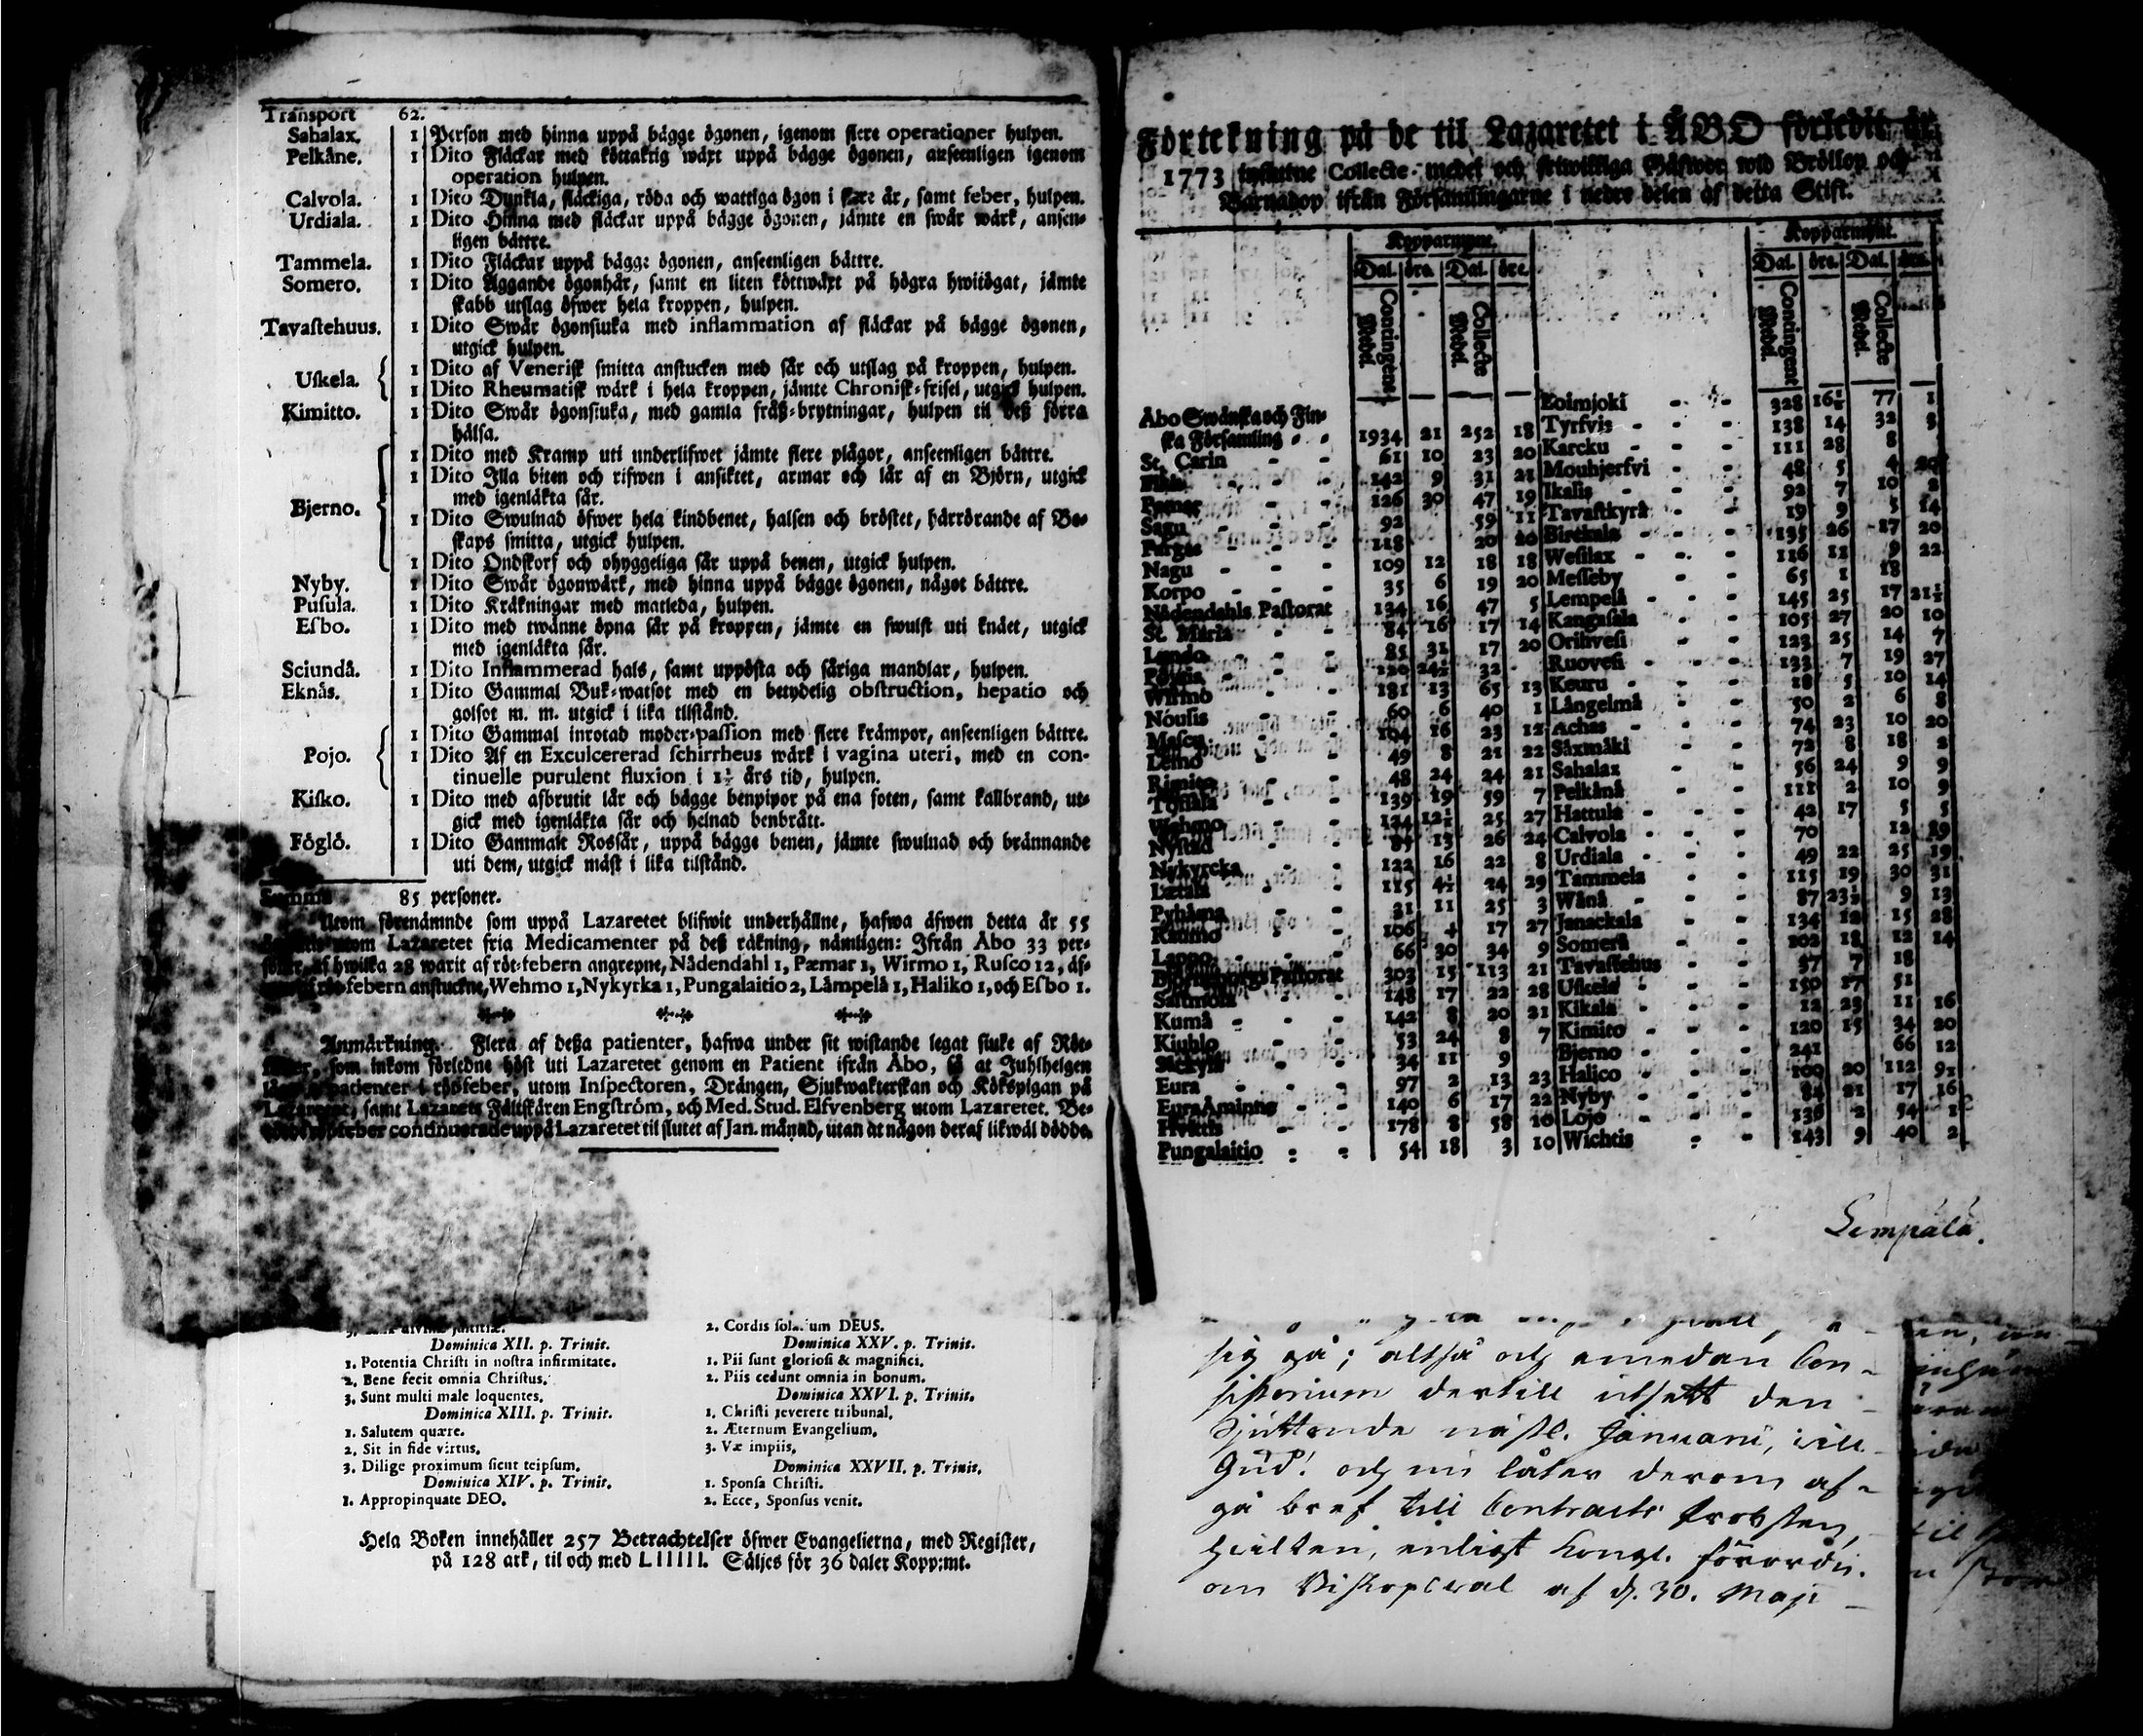 Transport 62.
Sahalax. 1 Person med hinna uppå bägge ögonen, igenom flere operationer hulpen.
Pelkåne. 1 Dito Fläckar med köttaktig wäxt uppå bägge ögonen, anseenligen igenom
operation hulpen.
Calvola. 1 Dito Dunkla, fläckiga, röda och wattiga ögon i flere år, samt feber, hulpen.
Urdiala. 1 Dito Hinna med fläckar uppå bägge ögonen, jämte en swår wärk, ansen-
ligen bättre.
Tammela. 1 Dito Fläckar uppå bägge ögonen, anseenligen bättre.
Somero. 1 Dito Äggande ögonhår, samt en liten köttwäxt på högra hwitögat, jämte
skabb utslag öfwer hela kroppen, hulpen.
Tavastehuus. 1 Dito Swår ögonsiuka med inflammation af fläckar på bägge ögonen,
utgick hulpen.
Uskela. 1 Dito af Venerisk smitta anstucken med sår och utslag på kroppen, hulpen.
1 Dito Rheumatisk wärk i hela kroppen, jämte Chronisk-frisel, utgick hulpen.
Kimitto. 1 Dito Swår ögonsiuka, med gamla fräß-brytningar, hulpen til deß förra
hälsa.
1 Dito med Kramp uti underlifwet jämte flere plågor, anseenligen bättre.
1 Dito Illa biten och rifwen i ansiktet, armar och lår af en Björn, utgick
med igenläkta sår.
Bjerno. 1 Dito Swulnad öfwer hela kindbenet, halsen och bröstet, härrörande af Bo-
skaps smitta, utgick hulpen.
1 Dito Ondskorf och ohyggeliga sår uppå benen, utgick hulpen.
Nyby. 1 Dito Swår ögonwärk, med hinna uppå bägge ögonen, något bättre.
Pusula. 1 Dito Kräkningar med matleda, hulpen.
Esbo. 1 Dito med twänne öpna sår på kroppen, jämte en swulst uti knäet, utgick
med igenläkta sår.
Sciundå. 1 Dito Inflammerad hals, samt uppösta och såriga mandlar, hulpen.
Eknäs. 1 Dito Gammal Buk-watsot med en betydelig obstruction, hepatio och
golsot m. m. utgick i lika tilstånd.
1 Dito Gammal inrotad moder-passion med flere krämpor, anseenligen bättre.
Pojo. 1 Dito Af en Exculcererad schirrheus wärk i vagina uteri, med en con-
tinuelle purulent fluxion i 1½ års tid, hulpen.
Kisko. 1 Dito med afbrutit lår och bägge benpipor på ena foten, samt kallbrand, ut-
gick med igenläkta sår och helnad benbrätt.
Föglö. 1 Dito Gammalt Rossår, uppå bägge benen, jämte swulnad och brännande
uti dem, utgick mäst i lika tilstånd.
Summa 85 personer.
Utom förenämnde som uppå Lazaretet blifwit underhållne, hafwa äfwen detta år 55
utom Lazaretet fria Medicamenter på deß räkning, nämligen: Ifrån Åbo 33 per-
soner, af hwilka 28 warit af röt-febern angrepne, Nådendahl 1, Pæmar 1, Wirmo 1, Rusco 12, äf-
febern anstuckne, Wehmo 1, Nykyrka 1, Pungalaitio 2, Låmpelå 1, Haliko 1, och Esbo 1.
Anmärkning. Flera af deßa patienter, hafwa under sit wistande legat siuke af Röt-
feber, som inkom förledne höst uti Lazaretet genom en Patient ifrån Åbo, så at Juhlhelgen
patienter i rötfeber, utom Inspectoren, Drängen, Sjukwakterskan och Kökspigan på
Lazaretet, samt Lazarets Fältskären Engström, och Med. Stud. Elfvenberg utom Lazaretet. Be-
feber continuerade uppå Lazaretet til slutet af Jan. månad, utan at någon deraf likwäl dödde.
Dominica XII. p. Trinit.
1. Potentia Christi in nostra infirmitate.
2. Bene fecit omnia Christus.
3. Sunt multi male loquentes.
Dominica XIII. p. Trinit.
1. Salutem quære.
2. Sit in fide virtus.
3. Dilige proximum sicut teipsum.
Dominica XIV. p. Trinit.
1. Appropinquate DEO.
2. Cordis solatium DEUS.
Dominica XXV. p. Trinit.
1. Pii sunt gloriosi & magnifici.
2. Piis cedunt omnia in bonum.
Dominica XXVI. p. Trinit.
1. Christi reverere tribunal.
2. Æternum Evangelium.
3. Væ impiis.
Dominica XXVII. p. Trinit.
1. Sponsa Christi.
2. Ecce, Sponsus venit.
Hela Boken innehåller 257 Betrachtelser öfwer Evangelierna, med Register,
på 128 ark, til och med Llllll. Säljes för 36 daler Kopp:mt.
Förtekning på de til Lazaretet i ÅBO förledit år
1773 influtne Collecte-medel och friwilliga Gåfwor wid Bröllop och
Barndop ifrån Församlingarne i nedre delen af detta Stift.
Kopparmynt.
Dal. öre. Dal. öre.
Contingent Medel. Collecte Medel.
Åbo Swänska och Fin-
ska Församling 1934 21 252 18
St. Carin 61 10 23 20
Pikis 142 9 31 21
Pemar 126 30 47 19
Sagu 92 59 11
Pargas 118 20 20
Nagu 109 12 18 18
Korpo 35 6 19 20
Nådendahls Pastorat 134 16 47 5
St. Mårie 84 16 17 14
Lundo 85 31 17 20
Pöytis 120 24½ 32
Wirmo 181 13 65 13
Nousis 60 6 40 1
Masco 104 16 23 12
Lemo 49 8 21 22
Rimito 48 24 24 21
Töfsala 139 19 59 7
Wehmo 124 12½ 25 27
Nystad 84 13 26 24
Nykyrcka 122 16 22 8
Letala 115 4½ 24 29
Pyhäma 21 11 25 3
Raumo 106 4 17 27
Lappo 66 30 34 9
Björneborgs Pastorat 303 15 113 21
Sastmola 148 17 22 28
Kumå 142 8 20 21
Kiuhlo 53 24 8 7
34 11 9
Eura 97 2 13 23
Eura Åminne 140 6 17 22
178 8 58 10
Pungalaitio 54 18 3 10
Kopparmynt.
Dal. öre. Dal. öre.
Contingent Medel. Collecte Medel.
Loimjoki 328 16½ 77 1
Tyrfvis 138 14 32 8
Karcku 111 28 8
Mouhjerfvi 48 5 4 20
Ikalis 92 7 10 2
Tavastkyrå 19 9 5 14
Birckala 135 26 17 20
Wesilax 116 11 9 22
Messeby 65 1 18
Lempelå 145 25 17 21½
Kangasala 105 27 20 10
Orihvesi 123 25 14 7
Ruovesi 133 7 19 27
Keuru 18 5 10 14
Långelmå 50 2 6 8
Achas 74 23 10 20
Såxmåki 72 8 18 2
Sahalax 56 24 9 9
Pelkånå 111 2 10 9
Hattula 42 17 5 5
Calvola 70 12 19
Urdiala 49 22 25 19
Tammela 115 19 30 31
Wånå 87 23½ 9 13
Janackala 134 12 15 28
Somerå 102 18 12 14
Tavastehus 57 7 18
Uskela 150 17 51
Kikala 12 23 11 16
Kimito 120 15 34 20
Bjerno 241 66 12
Halico 109 20 112 9½
Nyby 84 21 17 16
Lojo 136 2 54 1
Wichtis 143 9 40 2
Lempälä.
sig gå; altså och emedan Con-
sistorium dertill utsett den
Sjuttonde näst. Januarii, will
Gud! och nu låter derom af-
gå bref till Contracts Probsten,
hvilken, enligt Kongl. förordn.
om Biskopswal af d. 30. Maji